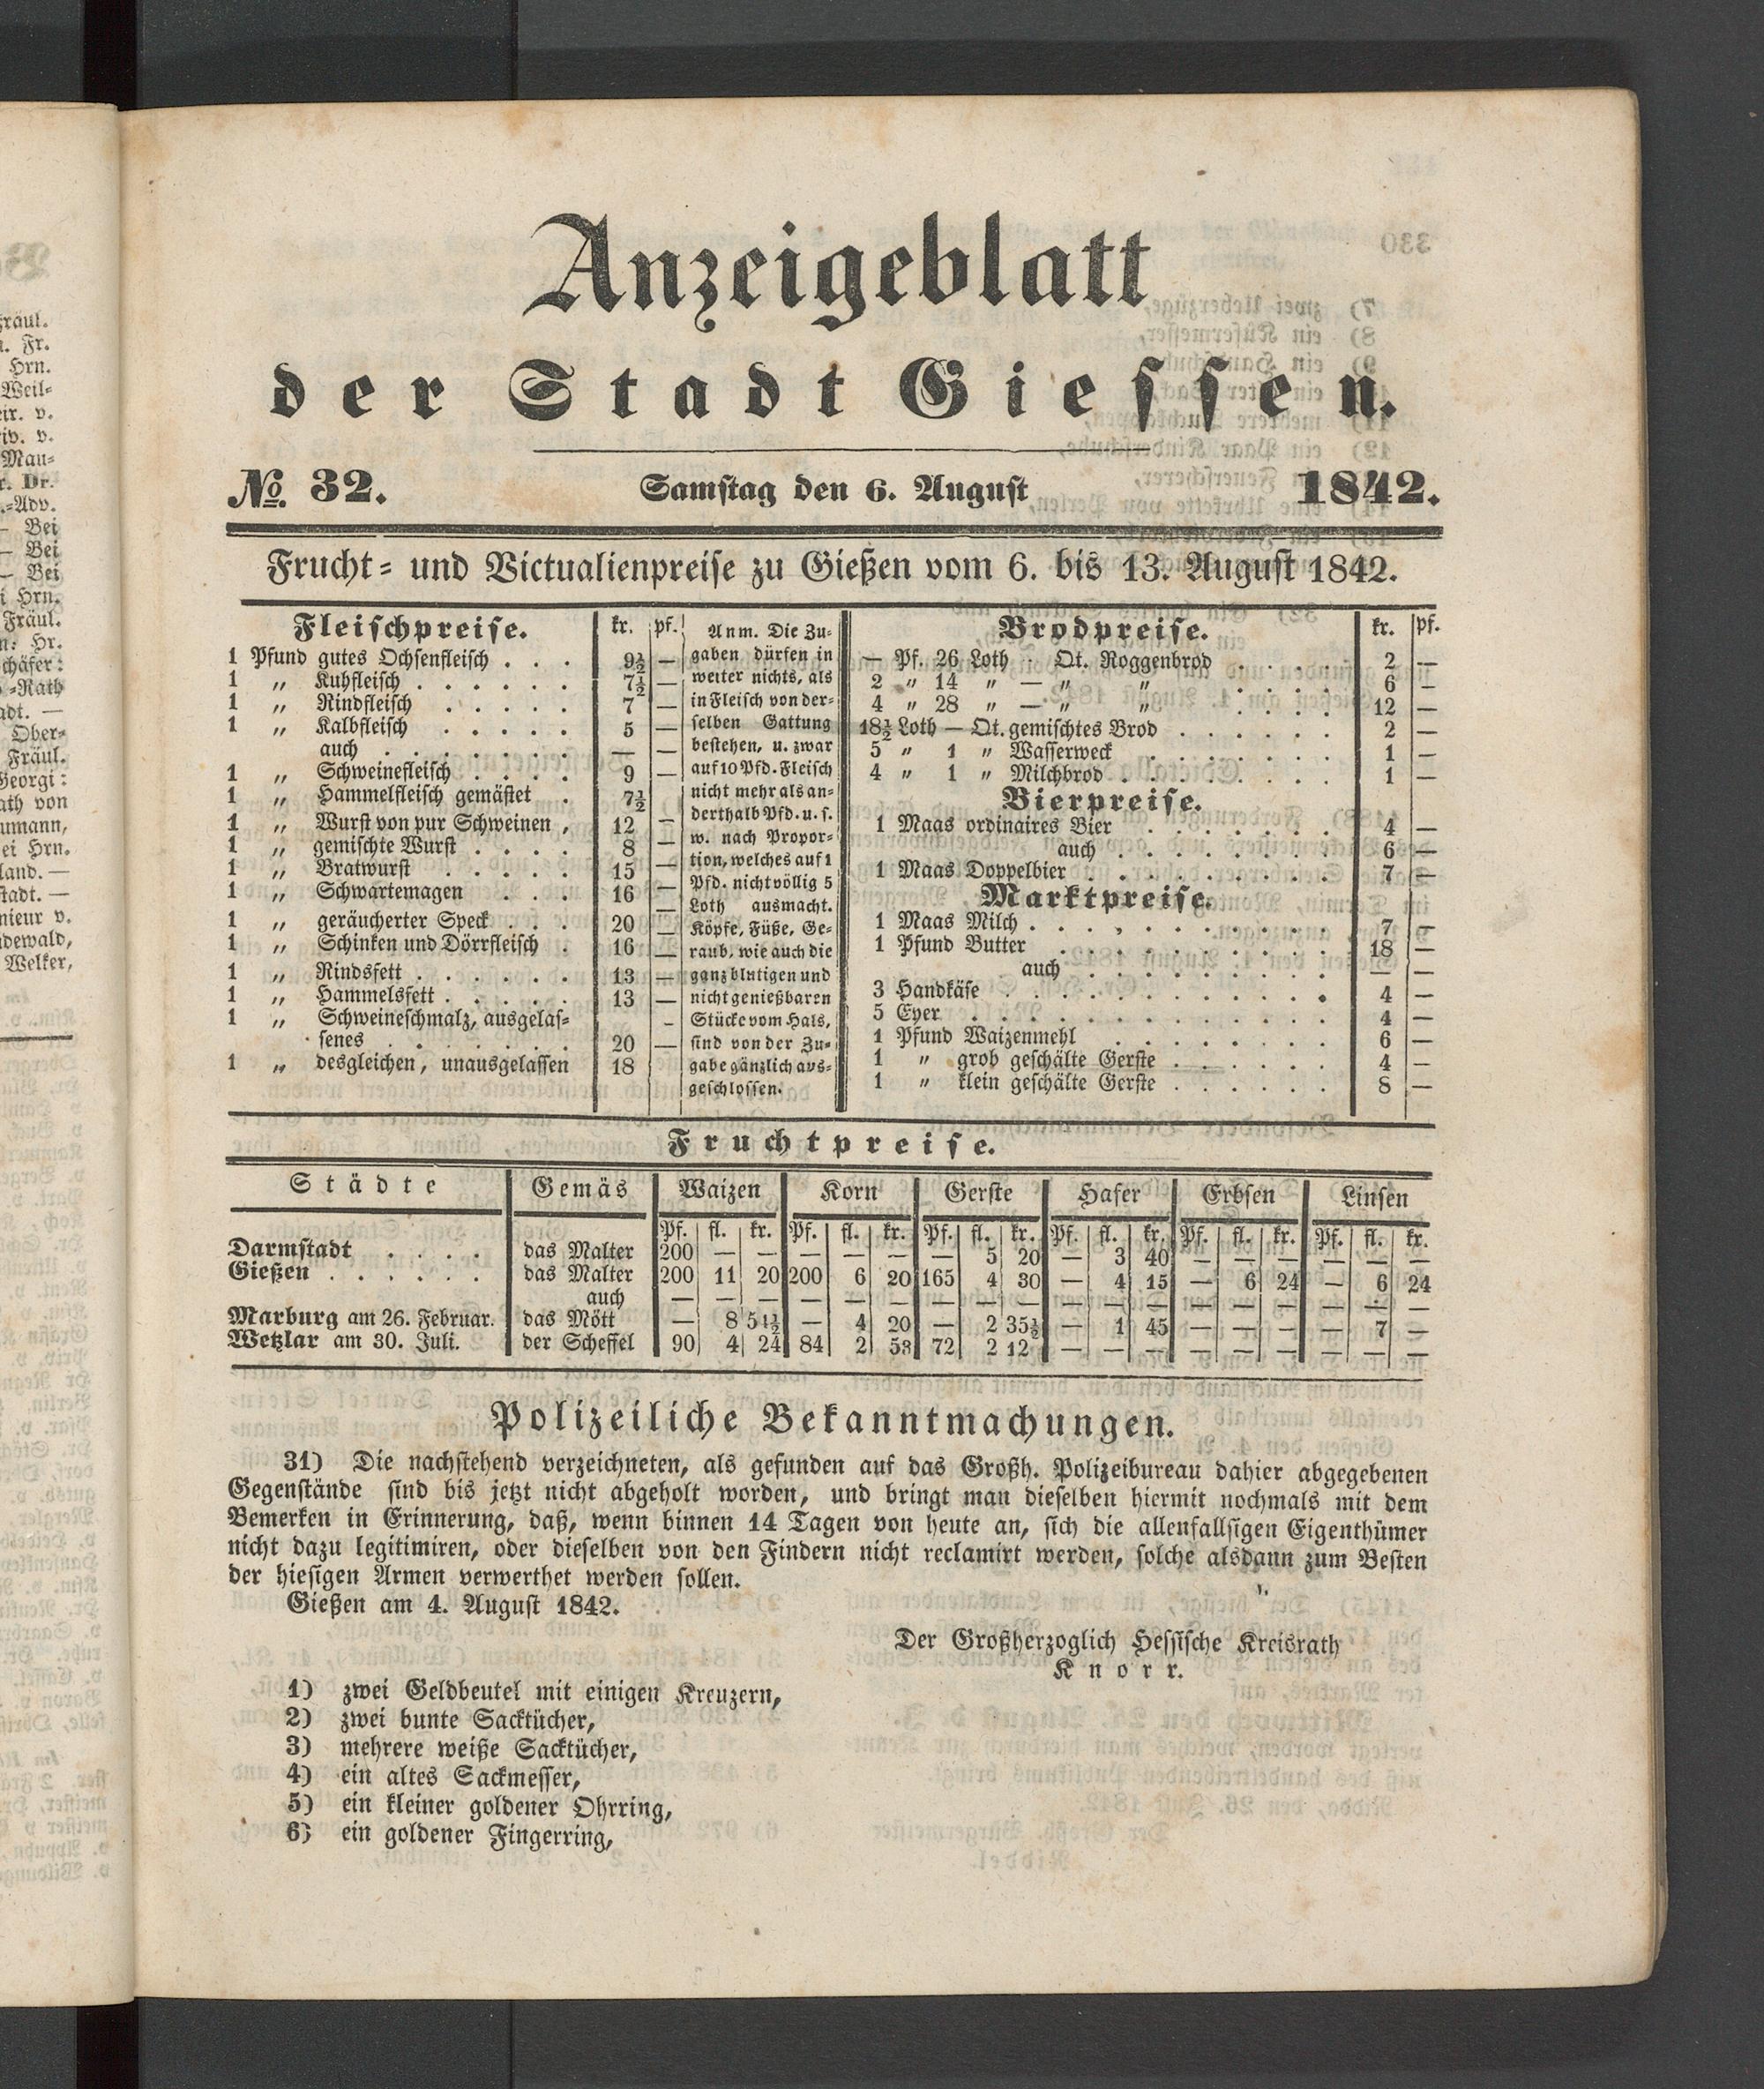 Anzeigeblatt
der Stadt Giessen.
No. 32. Samstag den 6. August 1842.
Frucht- und Victualienpreise zu Gießen vom 6. bis 13. August 1842.
Fleischpreise. kr. pf.
1 Pfund gutes Ochsenfleisch . . . 9½ —
1 „ Kuhfleisch . . . . . . 7½ —
1 „ Rindfleisch . . . . . 7 —
1 „ Kalbfleisch . . . . . 5 —
auch . . . . . . . — —
1 „ Schweinefleisch . . . . 9 —
1 „ Hammelfleisch gemästet . 7½
1 „ Wurst von pur Schweinen , 12 —
1 „ gemischte Wurst . . . . 8 —
1 „ Bratwurst . . . . . 15 —
1 „ Schwartemagen . . . 16 —
1 „ geräucherter Speck . . . 20 —
1 „ Schinken und Dörrfleisch . 16 —
1 „ Rindsfett . . . . . . 13 —
1 „ Hammelsfett . . . . . 13 —
1 „ Schweineschmalz, ausgelas- -
senes . . . . . . 20 —
1 „ desgleichen, unausgelassen 18
Anm. Die Zu-
gaben dürfen in
weiter nichts, als
in Fleisch von der-
selben Gattung
bestehen, u. zwar
auf 10 Pfd. Fleisch
nicht mehr als an-
derthalb Pfd. u. s.
w. nach Propor-
tion, welches auf 1
Pfd. nicht völlig 5
Loth ausmacht.
Köpfe, Füße, Ge-
raub, wie auch die
ganz blutigen und
nicht genießbaren
Stücke vom Hals,
sind von der Zu-
gabe gänzlich aus-
geschlossen.
Brodpreise. kr. pf.
— Pf. 26 Loth · Qt. Roggenbrod . . . . 2 —
2 „ 14 „ — „ „ . . . . 6 —
4 „ 28 „ — „ „ . . . . 12 —
18½ Loth — Qt. gemischtes Brod . . . . . . 2 —
5 „ 1 „ Wasserweck . . . . . . . 1 —
4 „ 1 „ Milchbrod . . . . . . . . 1 —
Bierpreise.
1 Maas ordinaires Bier . . . . . . . 4 —
auch . . . . . . . . 6 —
1 Maas Doppelbier . . . . . . . . . 7 —
Marktpreise.
1 Maas Milch . . . . . . . . . . . 7 —
1 Pfund Butter . . . . . . . . . . 18 —
auch . . . . . . . . . — —
3 Handkäse . . . . . . . . . . . . 4 —
5 Eyer . . . . . . . . . . . . . 4 —
1 Pfund Waizenmehl . . . . . . . . 6 —
1 „ grob geschälte Gerste . . . . . . 4 —
1 „ klein geschälte Gerste . . . . . . 8 —
Fruchtpreise.
Städte Gemäs Waizen Korn Gerste Hafer Erbsen Linsen
Pf. fl. kr. Pf. fl. kr. Pf. fl. kr. Pf. fl. kr. Pf. fl. kr. Pf. fl. kr.
Darmstadt . . . . das Malter 200 — — — — — — 5 20 — 3 40 — — — — — —
Gießen . . . . . . das Malter 200 11 20 200 6 20 165 4 30 — 4 15 — 6 24 — 6 24
auch — — — — — — — — — — — — — — — — — —
Marburg am 26. Februar. das Mött — 8 54½ — 4 20 — 2 35½ — 1 45 — — — — 7 —
Wetzlar am 30. Juli. der Scheffel 90 4 24 84 2 53 72 2 12 — — — — — — — — —
Polizeiliche Bekanntmachungen.
31) Die nachstehend verzeichneten, als gefunden auf das Großh. Polizeibureau dahier abgegebenen
Gegenstände sind bis jetzt nicht abgeholt worden, und bringt man dieselben hiermit nochmals mit dem
Bemerken in Erinnerung, daß, wenn binnen 14 Tagen von heute an, sich die allenfallsigen Eigenthümer
nicht dazu legitimiren, oder dieselben von den Findern nicht reclamirt werden, solche alsdann zum Besten
der hiesigen Armen verwerthet werden sollen.
Gießen am 4. August 1842.
Der Großherzoglich Hessische Kreisrath
Knorr.
1) zwei Geldbeutel mit einigen Kreuzern,
2) zwei bunte Sacktücher,
3) mehrere weiße Sacktücher,
4) ein altes Sackmesser,
5) ein kleiner goldener Ohrring,
6) ein goldener Fingerring,